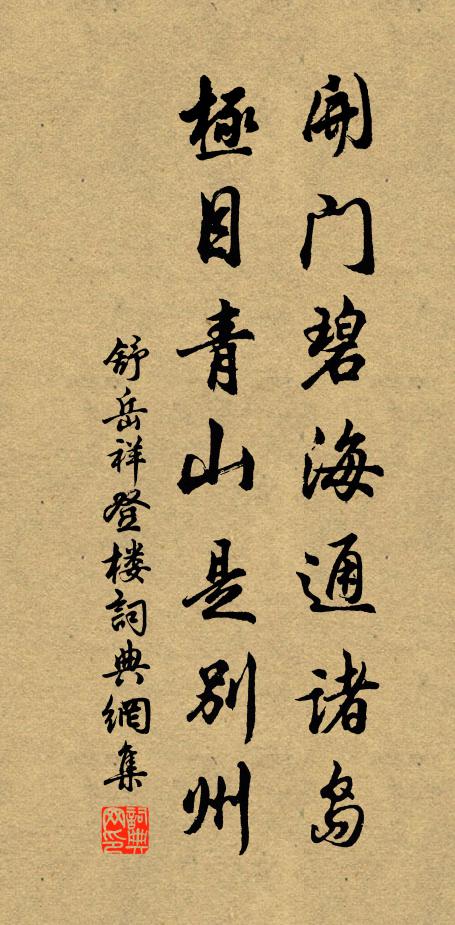 開门碧海通诸岛
極目青山是别州
舒岳祥登楼詞典網集
詞典网印